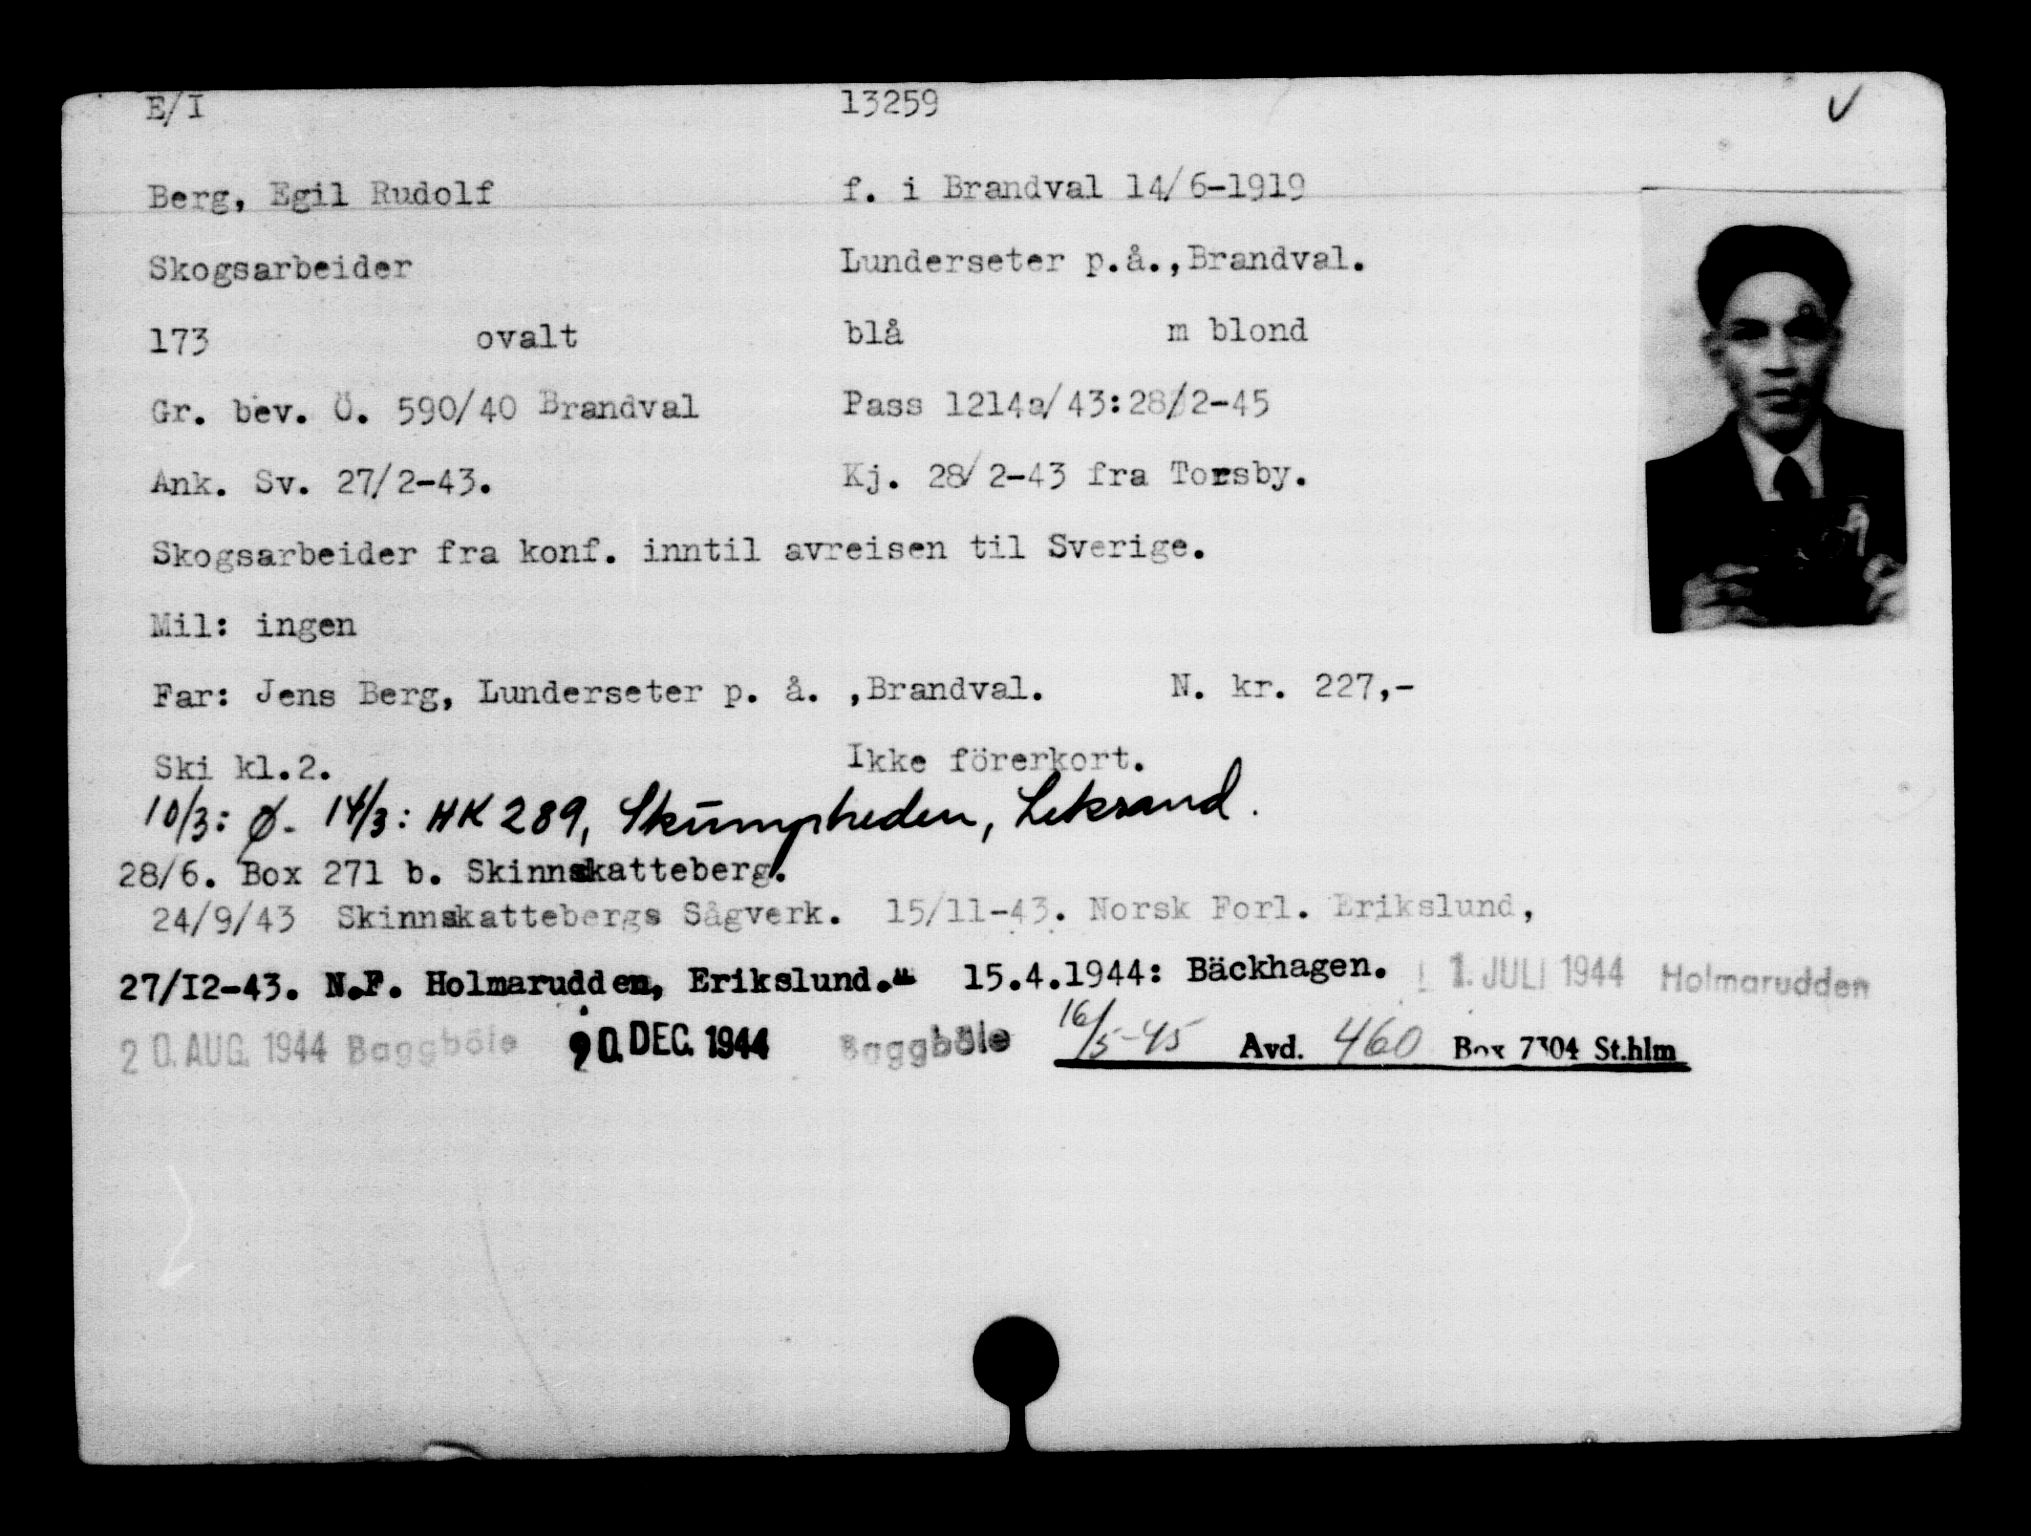 E/I 13259
Berg, Egil Rudolf f. i Brandval 14/6-1919
Skogsarbeider Lunderseter p.å.,Brandval.
173 ovalt blå m blond
Gr. bev. Ö. 590/40 Brandval Pass 1214a/43:28/2-45
Ank. Sv. 27/2-43. Kj. 28/2-43 fra Torsby.
Skogsarbeider fra konf. inntil avreisen til Sverige.
Mil: ingen
Far: Jens Berg, Lunderseter p. å. ,Brandval. N. kr. 227,-
Ski kl.2. Ikke förerkort.
10/3: Ø. 14/3: HK 289, Skümpheden, Leksand.
28/6. Box 271 b. Skinnskatteberg.
24/9/43 Skinnskattebergs Sågverk. 15/11-43. Norsk Forl. Erikslund,
27/I2-43. N.F. Holmarudden, Erikslund." 15.4.1944: Bäckhagen. 1. JULI 1944 Holmarudden
20. AUG. 1944 Baggböle 20. DEC. 1944 Baggböle 16/5-45 Avd. 460 Box 7304 St.hlm